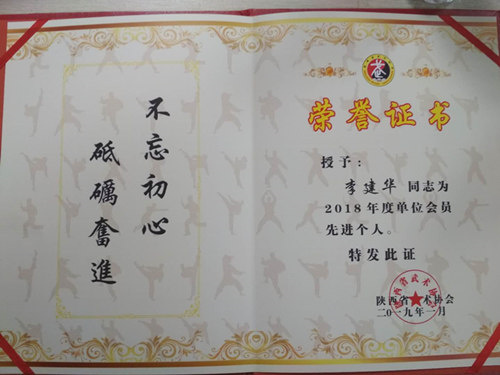 不忘初心
砥礪奮進
荣誉证书
授予：
李建华 同志为
2018年度单位会员
先进个人。
特发此证
陕西省武术协会
二〇一九年一月